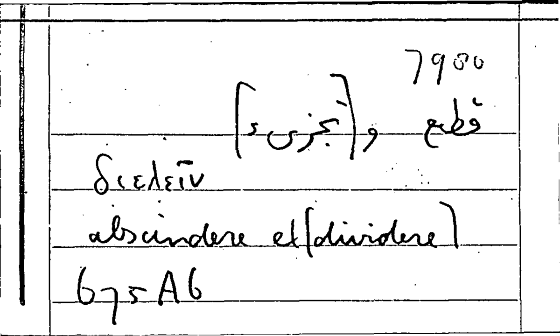 7900
قطع و [تجزىء]
διελεῖν
abscindere et [dividere]
675 A6